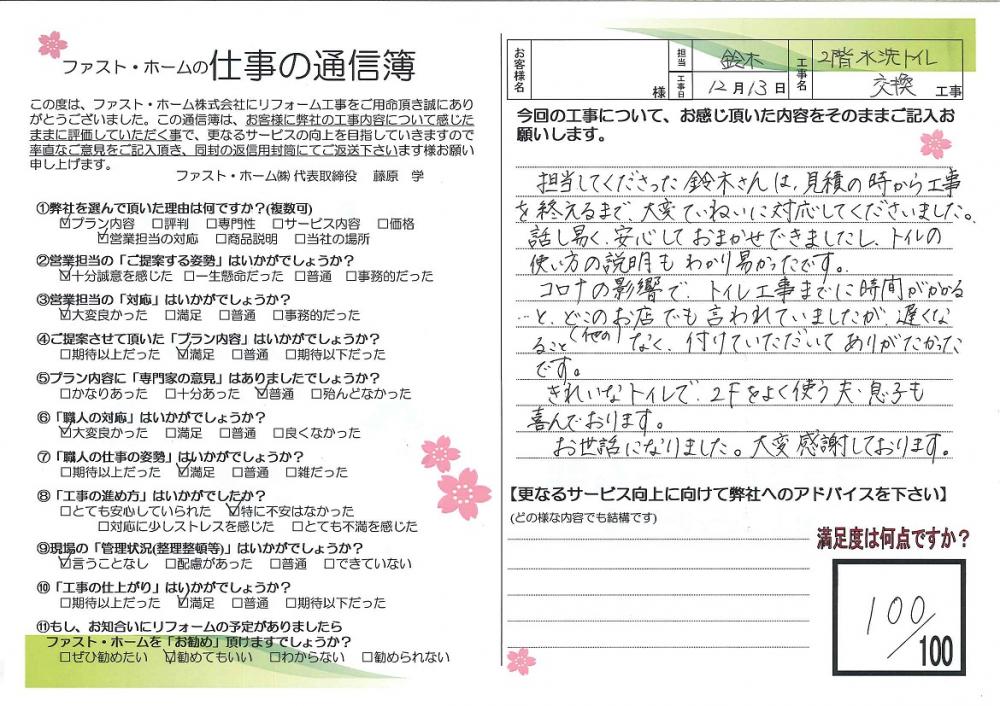 ファスト・ホームの仕事の通信簿
この度は、ファスト・ホーム株式会社にリフォーム工事をご用命頂き誠にあり
がとうございました。この通信簿は、お客様に弊社の工事内容について感じた
ままに評価していただく事で、更なるサービスの向上を目指していきますので
率直なご意見をご記入頂き、同封の返信用封筒にてご返送下さいます様お願い
申し上げます。
ファスト・ホーム㈱ 代表取締役 藤原 学
①弊社を選んで頂いた理由は何ですか?(複数可)
☑プラン内容 □評判 □専門性 □サービス内容 □価格
☑営業担当の対応 □商品説明 □当社の場所
②営業担当の「ご提案する姿勢」はいかがでしょうか?
☑十分誠意を感じた □一生懸命だった □普通 □事務的だった
③営業担当の「対応」はいかがでしょうか?
☑大変良かった □満足 □普通 □事務的だった
④ご提案させて頂いた「プラン内容」はいかがでしょうか?
□期待以上だった ☑満足 □普通 □期待以下だった
⑤プラン内容に「専門家の意見」はありましたでしょうか?
□かなりあった □十分あった ☑普通 □殆んどなかった
⑥「職人の対応」はいかがでしょうか?
☑大変良かった □満足 □普通 □良くなかった
⑦「職人の仕事の姿勢」はいかがでしょうか?
□期待以上だった ☑満足 □普通 □雑だった
⑧「工事の進め方」はいかがでしたか?
□とても安心していられた ☑特に不安はなかった
□対応に少しストレスを感じた □とても不満を感じた
⑨現場の「管理状況(整理整頓等)」はいかがでしょうか?
☑言うことなし □配慮があった □普通 □できていない
⑩「工事の仕上がり」はいかがでしょうか?
□期待以上だった ☑満足 □普通 □期待以下だった
⑪もし、お知合いにリフォームの予定がありましたら
ファスト・ホームを「お勧め」頂けますでしょうか?
□ぜひ勧めたい ☑勧めてもいい □わからない □勧められない
お客様名 様 担当 鈴木 工事名 2階水洗トイレ
工事日 12月13日 交換 工事
今回の工事について、お感じ頂いた内容をそのままご記入お
願いします。
担当してくださった鈴木さんは、見積の時から工事
を終えるまで、大変ていねいに対応してくださいました。
話し易く、安心しておまかせできましたし、トイレの
使い方の説明もわかり易かったです。
コロナの影響で、トイレ工事までに時間がかかる
と、どこのお店でも言われていましたが、遅くな
ること(他の)なく、付けていただいてありがたかった
です。
きれいなトイレで、2Fをよく使う夫・息子も
喜んでおります。
お世話になりました。大変感謝しております。
【更なるサービス向上に向けて弊社へのアドバイスを下さい】
(どの様な内容でも結構です)
満足度は何点ですか?
100/100